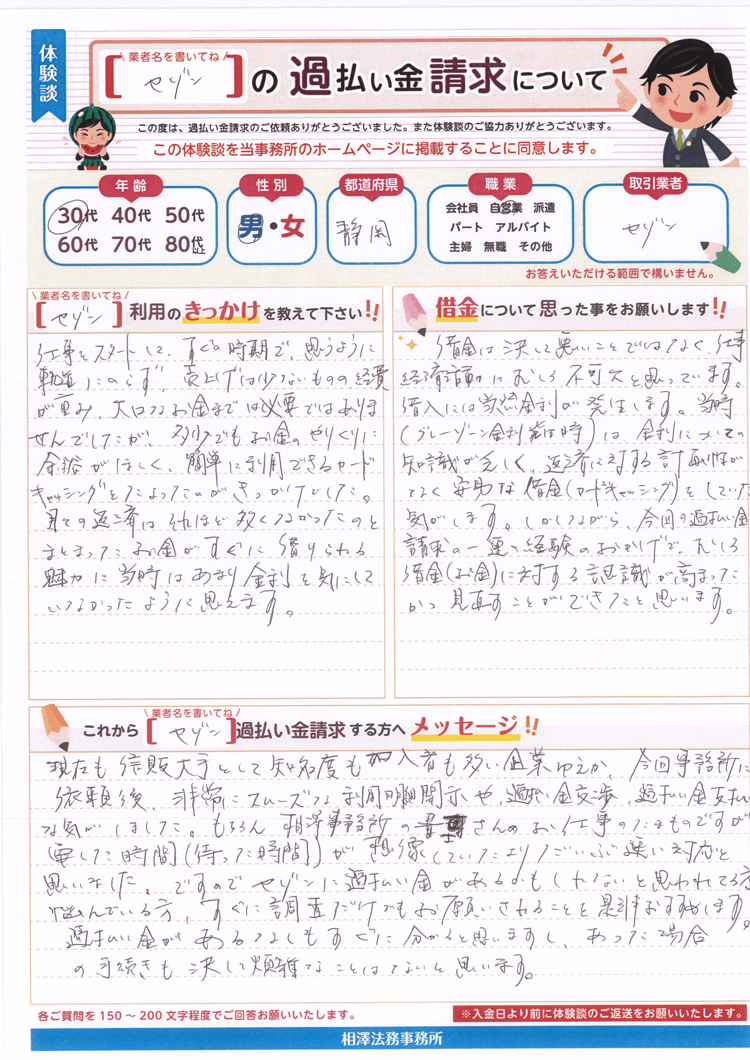 体験談
業者名を書いてね
[セゾン]の過払い金請求について
この度は、過払い金請求のご依頼ありがとうございました。また体験談のご協力ありがとうございます。
この体験談を当事務所のホームページに掲載することに同意します。
年齢
30代 40代 50代
60代 70代 80代以上
性別
男・女
都道府県
静岡
職業
会社員 自営業 派遣
パート アルバイト
主婦 無職 その他
取引業者
セゾン
お答えいただける範囲で構いません。
業者名を書いてね
[セゾン]利用のきっかけを教えて下さい!!
仕事をスタートして、すぐの時期で、思うように
軌道にのらず、売上げは少ないものの経費
が重み、大口なお金までは必要ではありま
せんでしたが、多少でもお金のやりくりに
余裕がほしく、簡単に利用できるカード
キャッシングをたよったのがきっかけでした。
月々の返済はそれほど多くなかったのと
まとまったお金がすぐに借りられる
魅力に当時はあまり金利を気にして
いなかったように思えます。
借金について思った事をお願いします!!
借金は決して悪いことではなく、仕事
経済活動にむしろ不可欠と思っています。
借入には当然金利が発生します。当時
(グレーゾーン金利 時)は、金利についての
知識が乏しく、返済に対する計画性が
なく安易な借金(カードキャッシング)をしていた
気がします。しかしながら、今回の過払い金
請求の一連の経験のおかげで、むしろ
借金(お金)に対する認識が高まった
かつ見直すことができたと思います。
業者名を書いてね
これから[セゾン]過払い金請求する方へメッセージ!!
現在も信販大手として知名度も加入者も多い企業ゆえか、今回事務所に
依頼後、非常にスムーズな利用明細開示や、過払い金交渉、過払い金支払い
な気がしました。もちろん相澤事務所の さんのお仕事のたまものですが
要した時間(待った時間)が想像していたよりだいぶ速い対応と
思いました。ですのでセゾンに過払い金があるかもしれないと思われてる方
悩んでいる方、すぐに調査だけでもお願いされることを是非おすすめします。
過払い金があるなしもすぐに分かると思いますし、あった場合
の手続きも決して煩雑なことはないと思います。
各ご質問を150~200文字程度でご回答お願いいたします。
※入金日より前に体験談のご返送をお願いいたします。
相澤法務事務所